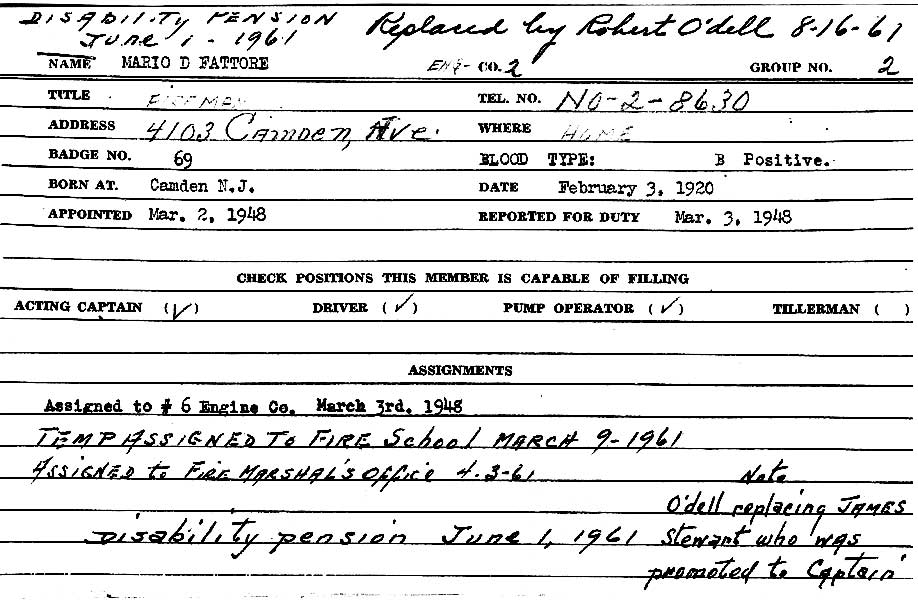 DISABILITY PENSION
JUNE 1 - 1961 Replaced by Robert O'dell 8-16-61
NAME MARIO D FATTORE ENG- CO. 2 GROUP NO. 2
TITLE FIREMAN TEL. NO. NO-2-8630
ADDRESS 4103 Camden, Ave. WHERE HOME
BADGE NO. 69 BLOOD TYPE: B Positive.
BORN AT. Camden N.J. DATE February 3, 1920
APPOINTED Mar. 2, 1948 REPORTED FOR DUTY Mar. 3, 1948
CHECK POSITIONS THIS MEMBER IS CAPABLE OF FILLING
ACTING CAPTAIN (✓) DRIVER (✓) PUMP OPERATOR (✓) TILLERMAN ( )
ASSIGNMENTS
Assigned to # 6 Engine Co. March 3rd. 1948
TEMP ASSIGNED TO FIRE School MARCH 9-1961
ASSIGNED to FIRE MARSHAL'S Office 4-3-61 Note
O'dell replacing JAMES
Disability pension June 1, 1961 Stewart who was
promoted to Captain